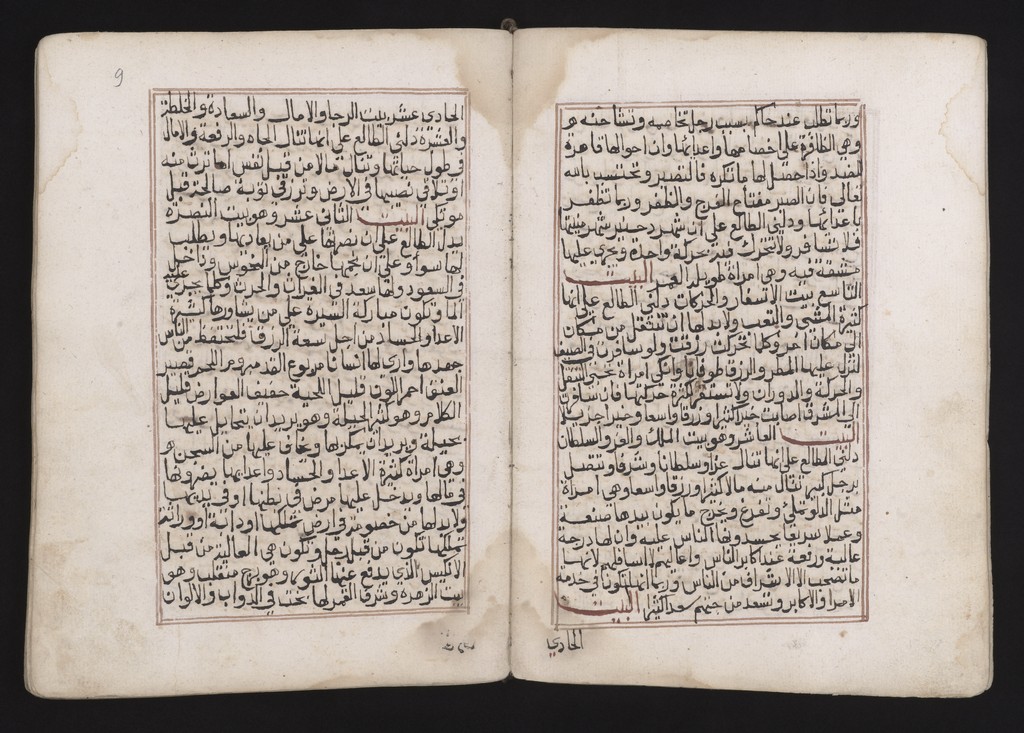 وربما تطلب عند حاكم بسبب رجل تخاصمه وتشاحنه
وهي الظافرة على اخصامها واعدايها وان احوالها قاهرة
للضد واذا حصل لها ما تكره فالتصبر وتحتسب بالله
تعالى فان الصبر مفتاح الفرج والظفر وربما تظفر
باعدايها ودلني الطالع على ان
فلا تسافر ولا تتحرك فيه حركة واحدة ويجري عليها
مشقة فيه وهي امراة طويلة البيت
التاسع بيت الاسفار والحركات دلني الطالع على انها
كثيرة المشي والتعب ولا بد لها ان تنتقل من مكان
الى مكان اخر وكلما تحركت رزقت ولو سافرت في الصيف
لنزل عليها المطر والرزق امراة تحب السفر
والحركة والدوران ولا تستقر كثرة حركتها فان سافرت
الى المشرق اصابت خيرا كثيرا ورزقا واسعا وخيرا جزيلا
البيت العاشر وهو بيت الملك والعز والسلطان
دلني الطالع على انها تنال عزا وسلطانا وشرفا وتتصل
برجل كبير تنال منه مالا كثيرا ورزقا واسعا وهي امراة
مثل الدلو تملي وتفرغ ويخرج ما يكون بيدها صنعة
وعملا سريعا يحسدونها الناس عليه وان لها درجة
عالية ورفعة عند اكابر الناس واعاليهم واسافلهم لانها
ما تصحب الا الاشراف من الناس وربما انها تكون في خدمة
الامرا والاكابر وتسعد من جهتهم سعدا كثيرا البيت
الحادي
9
الحادي عشر بيت الرجا والامال والسعادة والخلطة
والعشرة دلني الطالع على انها تنال الجاه والرفعة والامال
في طول حياتها وتنال مالا من قبل اما ترث منه
او توتى في نصيبها في الارض وترزق توبة صالحة قبل
موتها البيت الثاني عشر وهو بيت النصرة
يدل الطالع على ان نصرتها على من يعاديها ويطلب
لها سوا وعلى ان نجمها خارج من النحوس وداخل
في السعود ولها سعد في والحرث وكلما يجري عليه
الما وتكون مباركة السيرة على من يشاورها كثيرة
الاعدا والحساد من اجل سعة الرزق فلتحتفظ من الناس
جهدها وارى لها انسانا مربوع القد مبروم اللحم قصير
العنق احمر اللون قليل اللحية خفيف العوارض قليل
الكلام وهو كثير الحيلة وهو يريد ان يتحايل عليها
بحيلة ويريد ان يمكر بها ويخاف عليها من السجن
وهي امراة كثيرة الاعدا والحساد واعدايها يضرونها
في مالها ويدخل عليها مرض في بطنها او في يديها
ولا بد لها من خصومة في ارض تملكها او دابة او وراثة
تملكها تكون من قبل رجل وتكون هي الغالبة من قبل
الذي يدفع عنها الثور وهو برج منقلب وهو
بيت الزهرة وشرف القمر لها بخت في الدواب والالوان